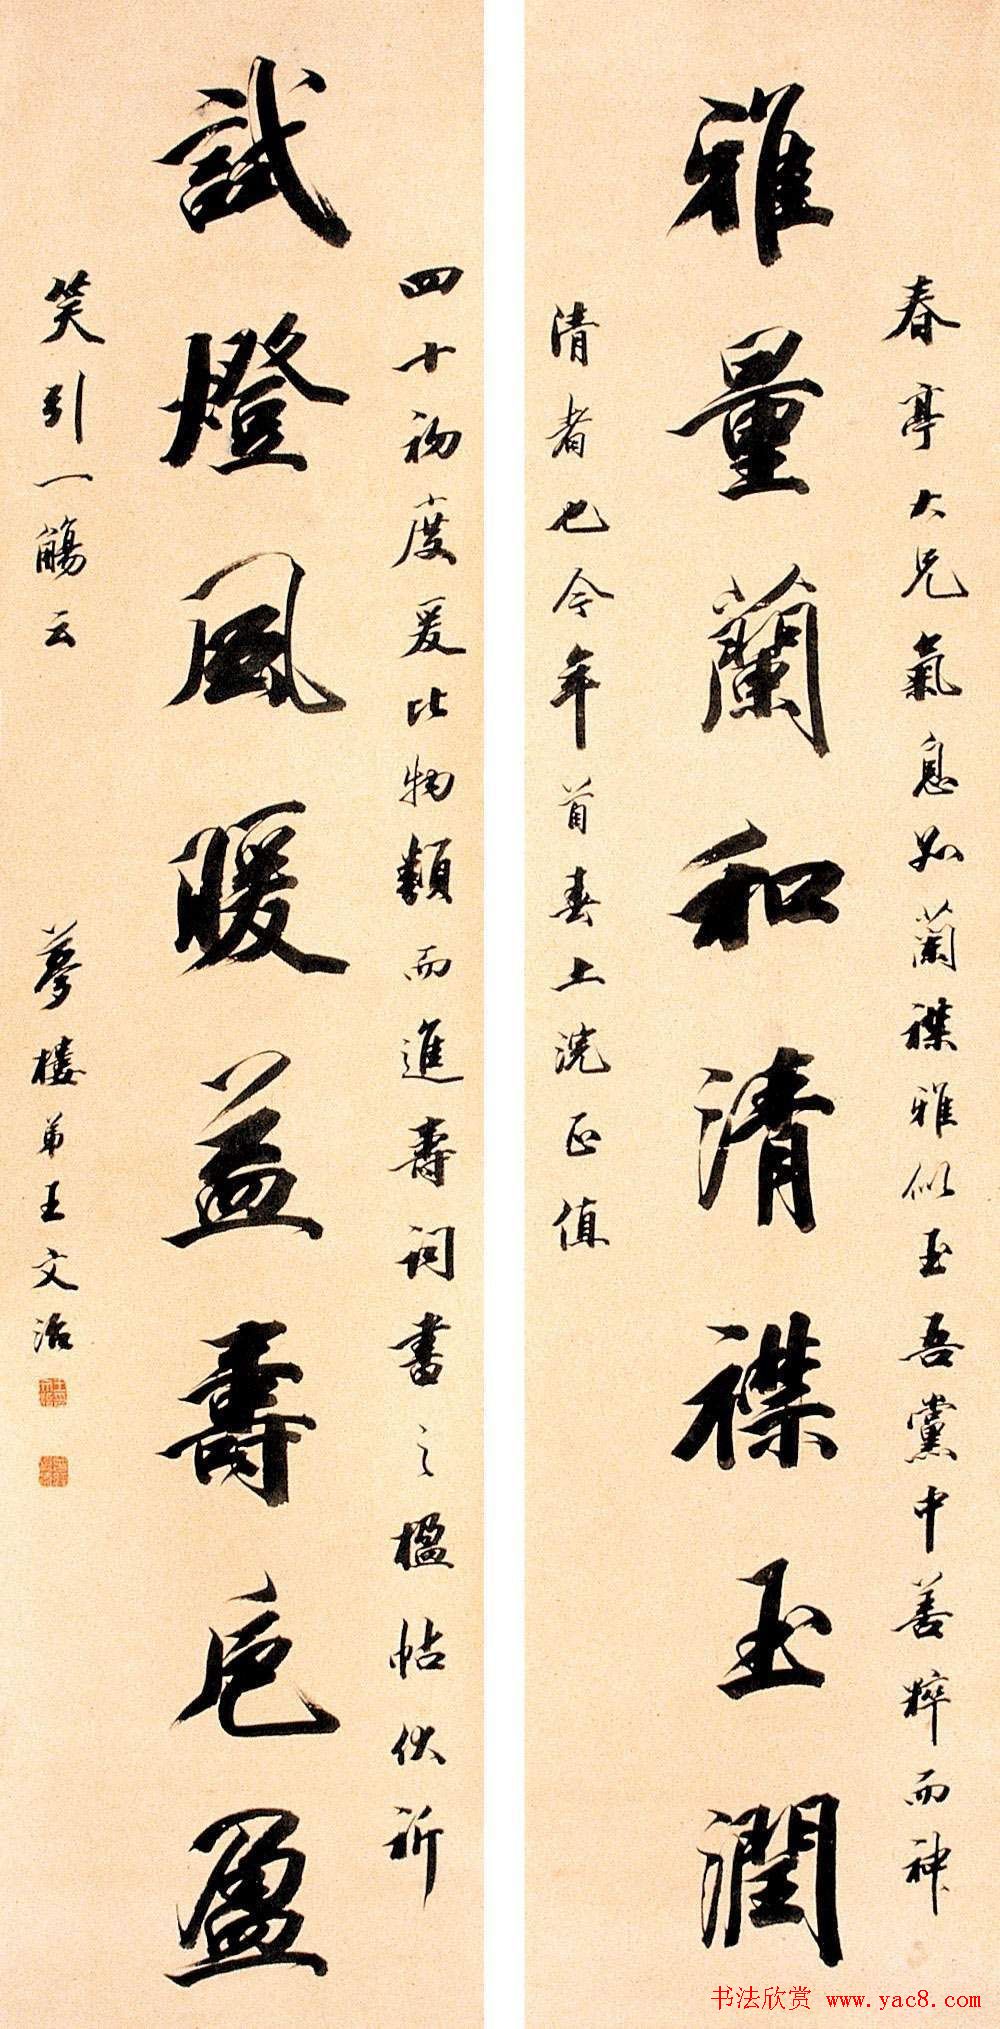 春亭大兄氣息如蘭襟雅似玉吾黨中善粹而神
雅量蘭和清襟玉潤
清者也今年首春上浣正值
四十初度爰比物類而進壽詞書之楹帖伏祈
試燈風暖益壽卮盈
笑引一觴云
夢樓弟王文治
书法欣赏 www.yac8.com